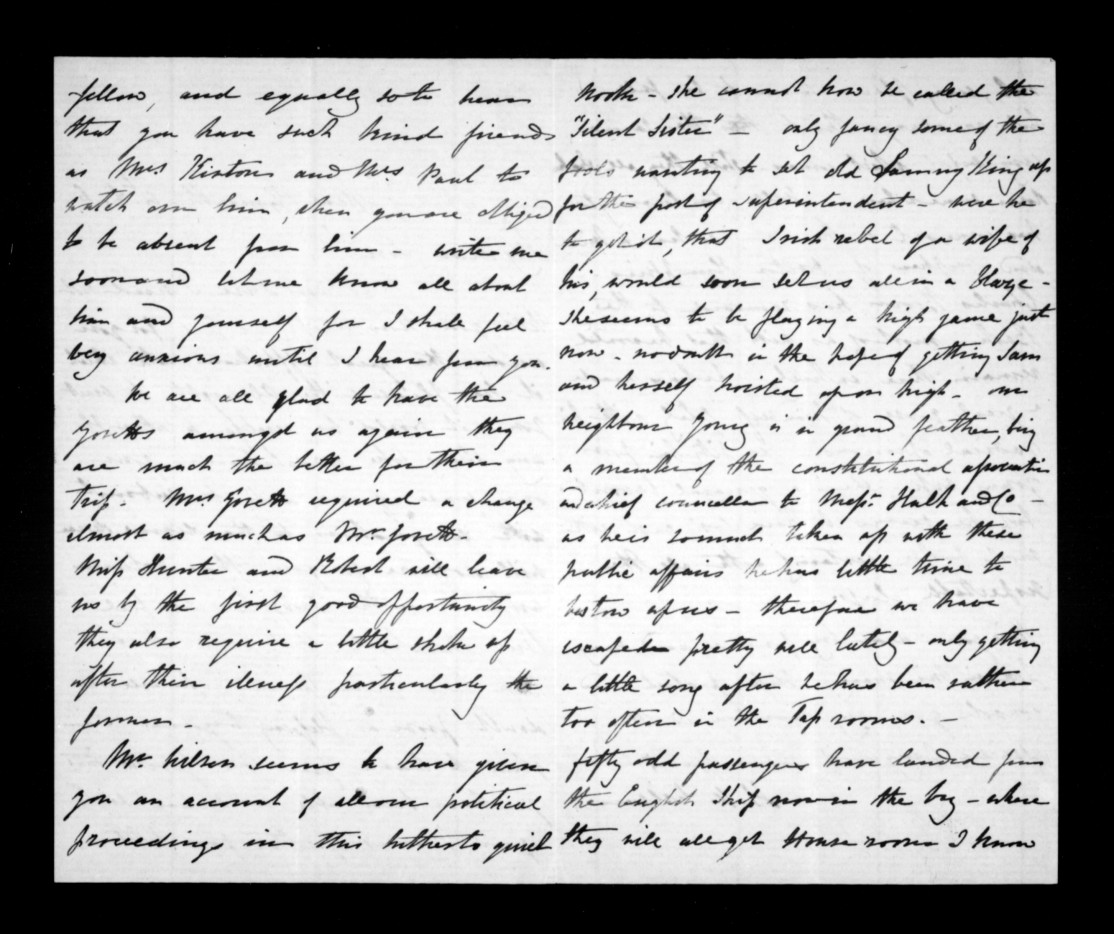 fellow, and equally so to hear
that you have such kind friends
as Mrs and Mrs Paul to
watch over him, when you are obliged
to be absent from him - write me
soon and let me know all about
him and yourself for I shall feel
very anxious until I hear from you.
We are all glad to have the
amongst us again they
are much the better for their
trip. Mrs required a change
almost as much as Mr
Miss Hunter and Robert will leave
us by the first good opportunity
they also require a little shake up
after their illness particularly the
former -
Mr Wilson seems to have given
you an account of all our political
proceedings in this hitherto quiet
nook - She cannot now be called the
"Silent Sister" - only fancy some of the
fools wanting to set old Sammy King up
for the post of Superintendent - were he
to get it, that Irish rebel of a wife of
his, would soon set us all in a blaze -
She seems to be playing a high game just
now - no doubt in the hope of getting Sam
and herself hoisted upon high - our
neighbour Young is in grand feather, being
a member of the constitutional association
and chief councellor to Messrs and Co -
as he is so much taken up with these
public affairs he has little time to
bestow upon us - therefore we have
escaped pretty well lately - only getting
a little song after he has been rather
too often in the Tap rooms. -
fifty odd passengers have landed from
the English Ship now in the bay - where
they will all get House room I know